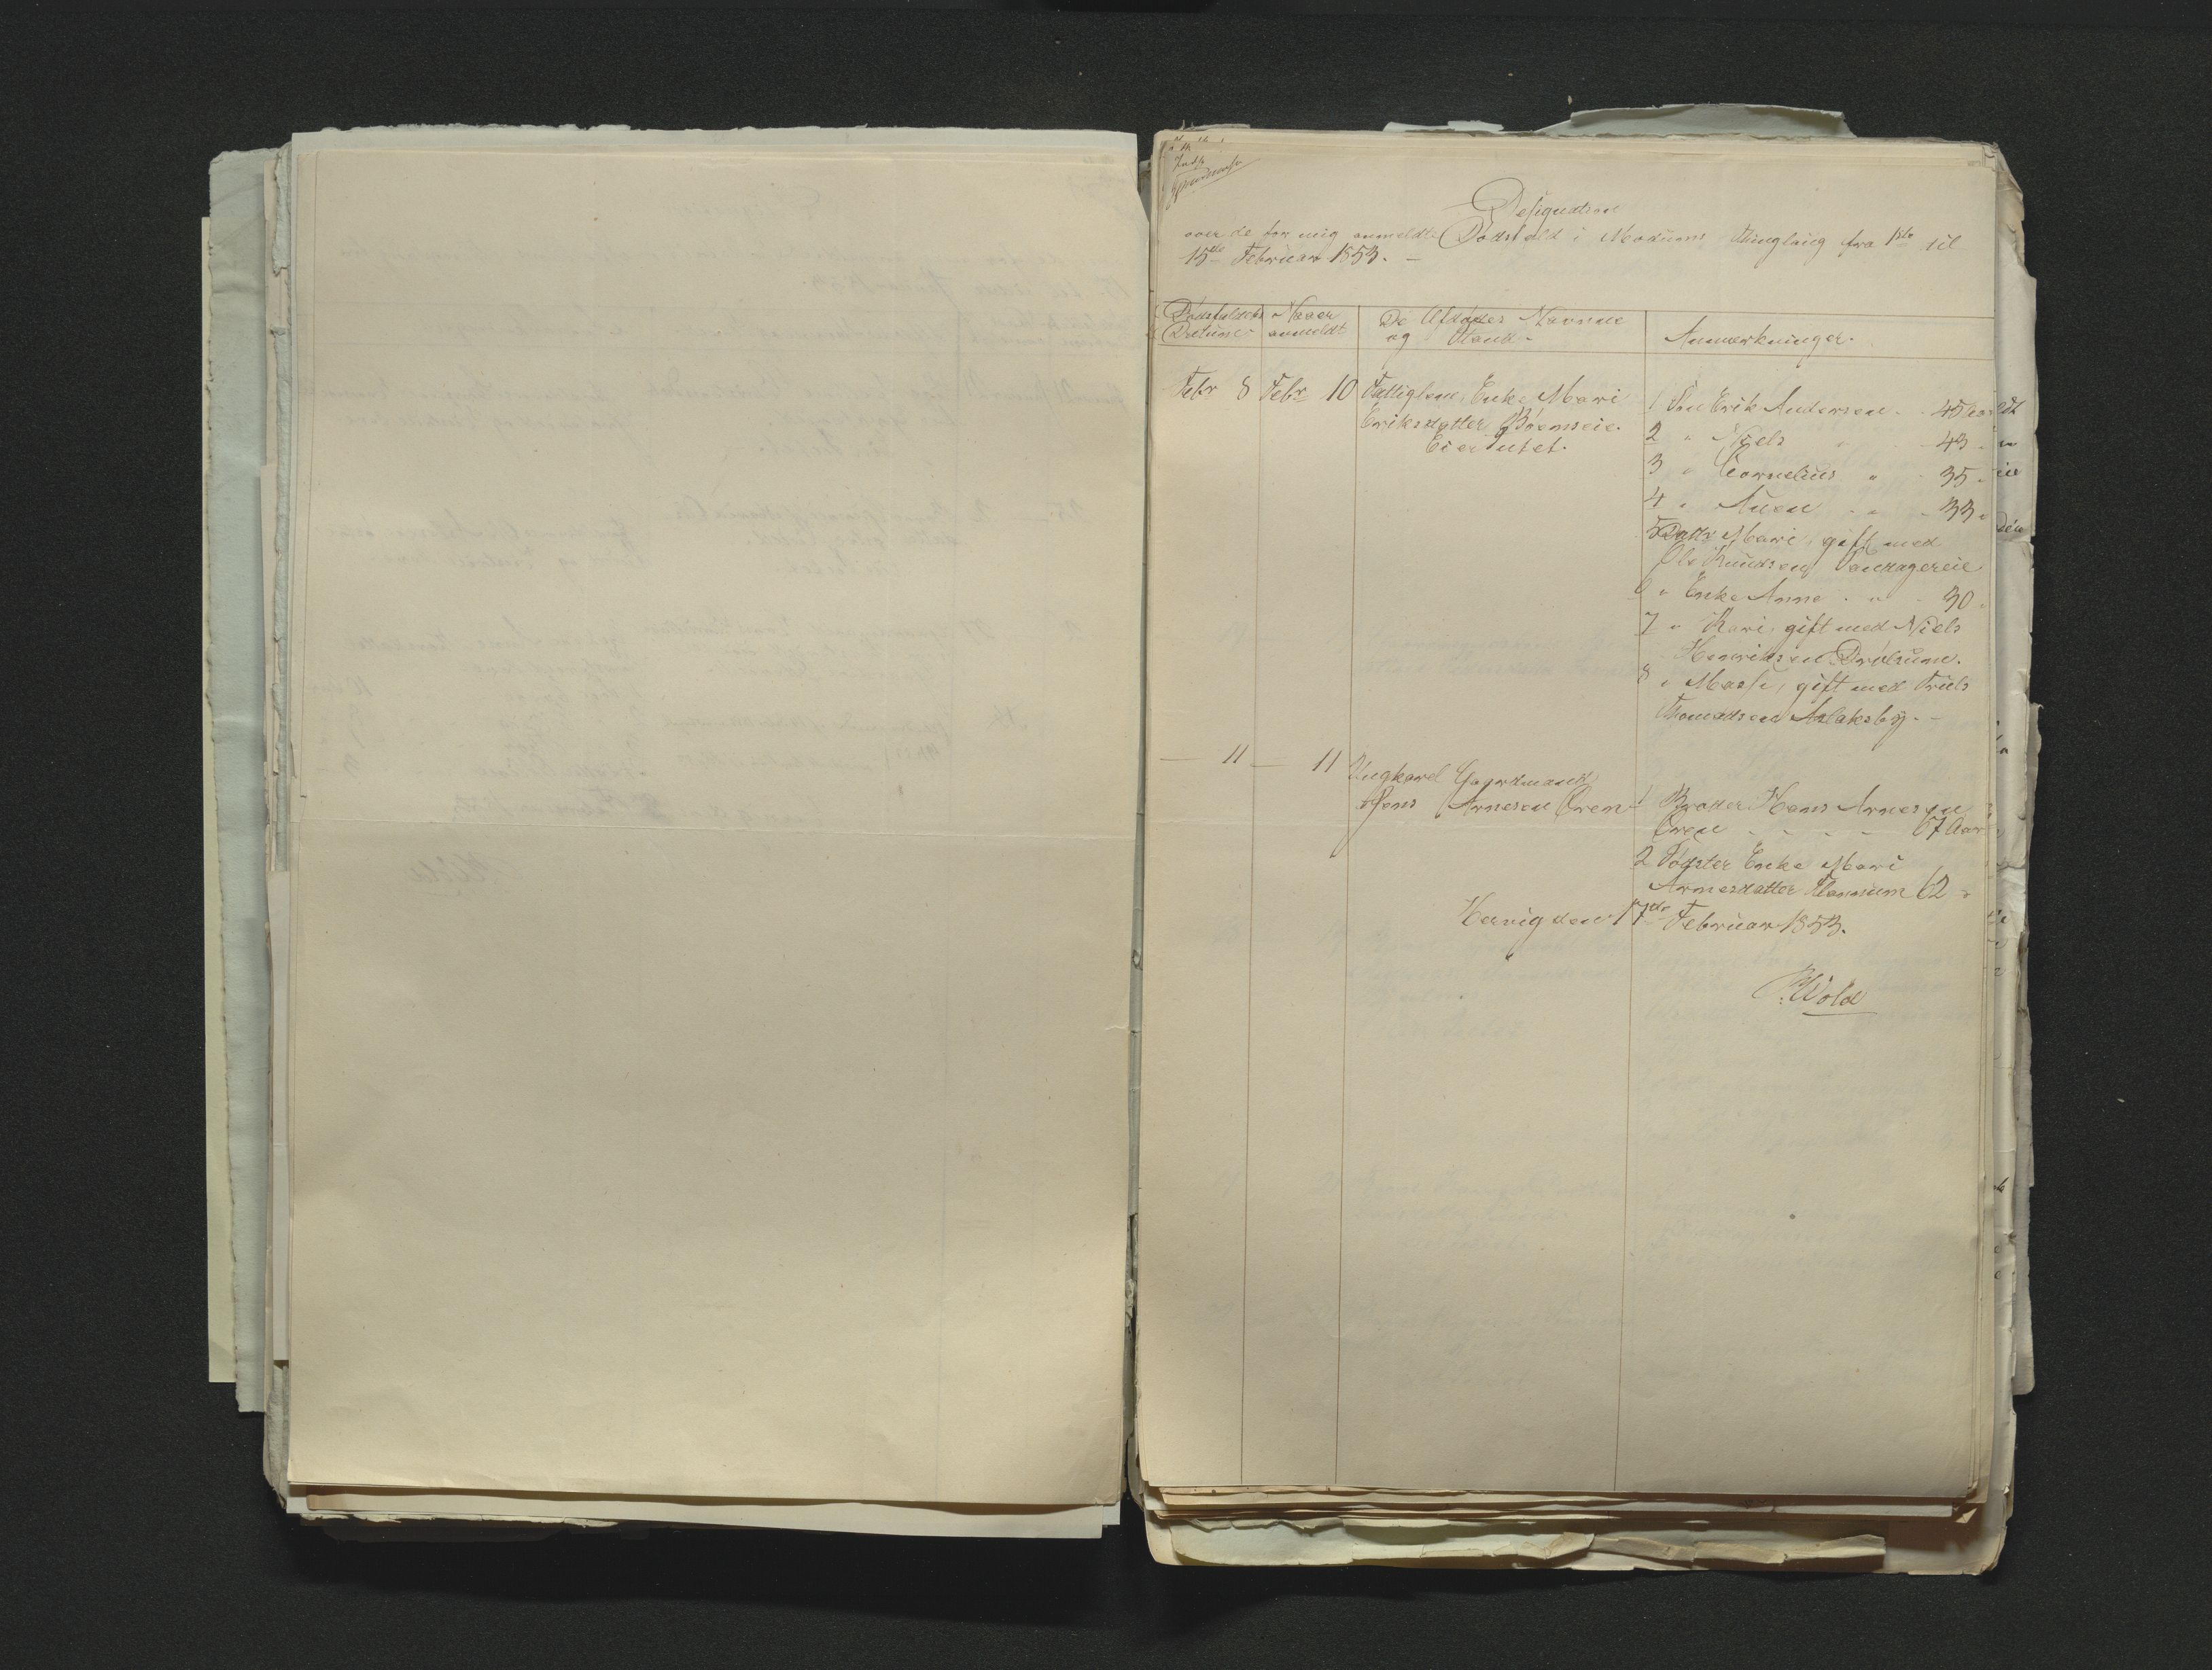 Designation
over de for mig anmeldte Dødsfald i Modums Thinglaug fra 1ste til
15de Februar 1853. —
Dødsfaldets Datum
Naar anmeldt
De Afdødes Navne og Stand
Anmærkninger.
Febr 8 Febr 10 Fattiglem, Enke Mari
Eriksdatter Böenseie.
Eier Intet.
1 Søn Erik Andersen - 45 Aar
2 " Niels " - 43 "
3 " Cornelius " - 35 "
4 " Auen " - 33 "
5 Datter Mari, gift med
Ole Knudsen
6 " Enke Anne " - 30 "
7 " Kari, gift med Niels
Henriksen Drolsum.
8 " Marte, gift med Truls
Thomassen Aslaksby. -
— 11 — 11 Ungkarl Gaardmand
Jens Arnesen Øren
1 Broder Hans Arnesen
Øren - - - - 67 Aar
2 Søster Enke Mari
Arnesdatter 62 "
Hervig den 17de Februar 1853.
Wold